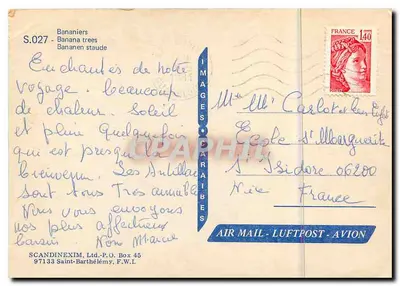 Bananiers
S.027 - Banana trees
Bananen staude
Enchantés de notre
voyage. beaucoup
de chaleur. Soleil
et pluie quelquefois
qui est presque la
bienvenue. Les Antillais
sont tous très aimables
Nous vous envoyons
nos plus affectueux
baisers.
SCANDINEXIM, Ltd.-P.O. Box 45
97133 Saint-Barthélémy, F.W.I.
IMAGES CARAIBES
FRANCE
1,40
Me Mr Carlot et les
Ecole St Marguerite
St Isidore 06200
Nice France
AIR MAIL - LUFTPOST - AVION
CPAPHIL